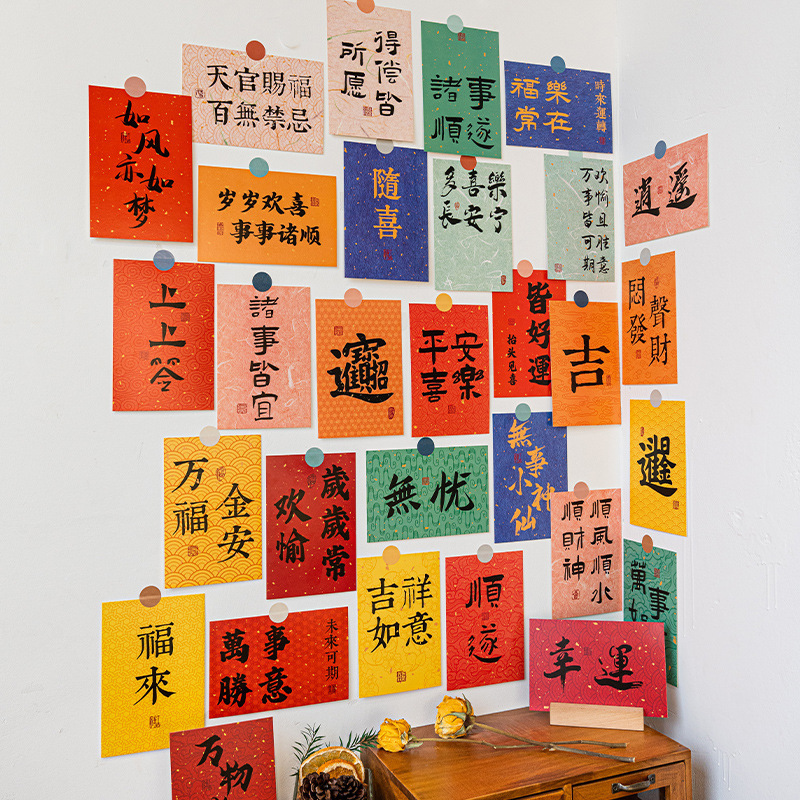 天官賜福
百無禁忌
得偿皆
所愿
諸事
順遂
福樂
常在
時來運轉
如风
亦如
梦
岁岁欢喜
事事诸顺
隨喜
多喜樂
長安宁
欢愉且胜意
万事皆可期
逍遥
上上签
諸事皆宜
平安
喜樂
皆好運
抬头见喜
吉
悶聲
發財
万福
金安
歲歲常
欢愉
無忧
無事
小神仙
順風順水
順財神
萬事
如
吉祥
如意
順遂
幸運
福來
萬事
勝意
未來可期
万物